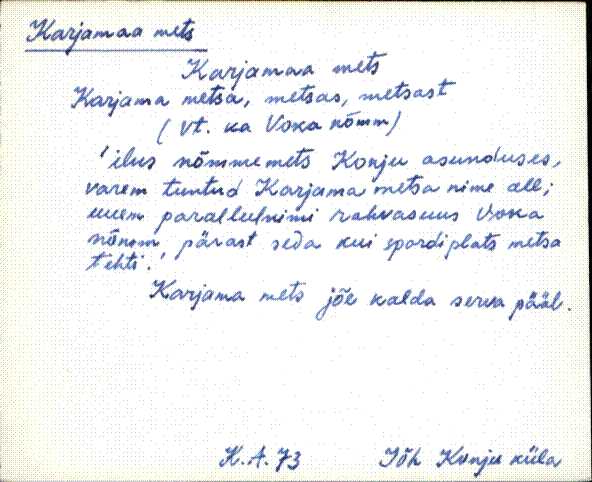 Karjamaa mets
Karjamaa mets
Karjama metsa, metsas, metsast
(vt. ka Voka nõmm)
'ilus nõmmemets Konju asunduses,
varem tuntud Karjama metsa nime all;
uuem paralleelnimi rahvasuus Voka
nõmm', pärast seda kui spordiplats metsa
tehti.'
Karjama mets jõe kalda serva pääl.
K.A.73 Jõh Konju küla